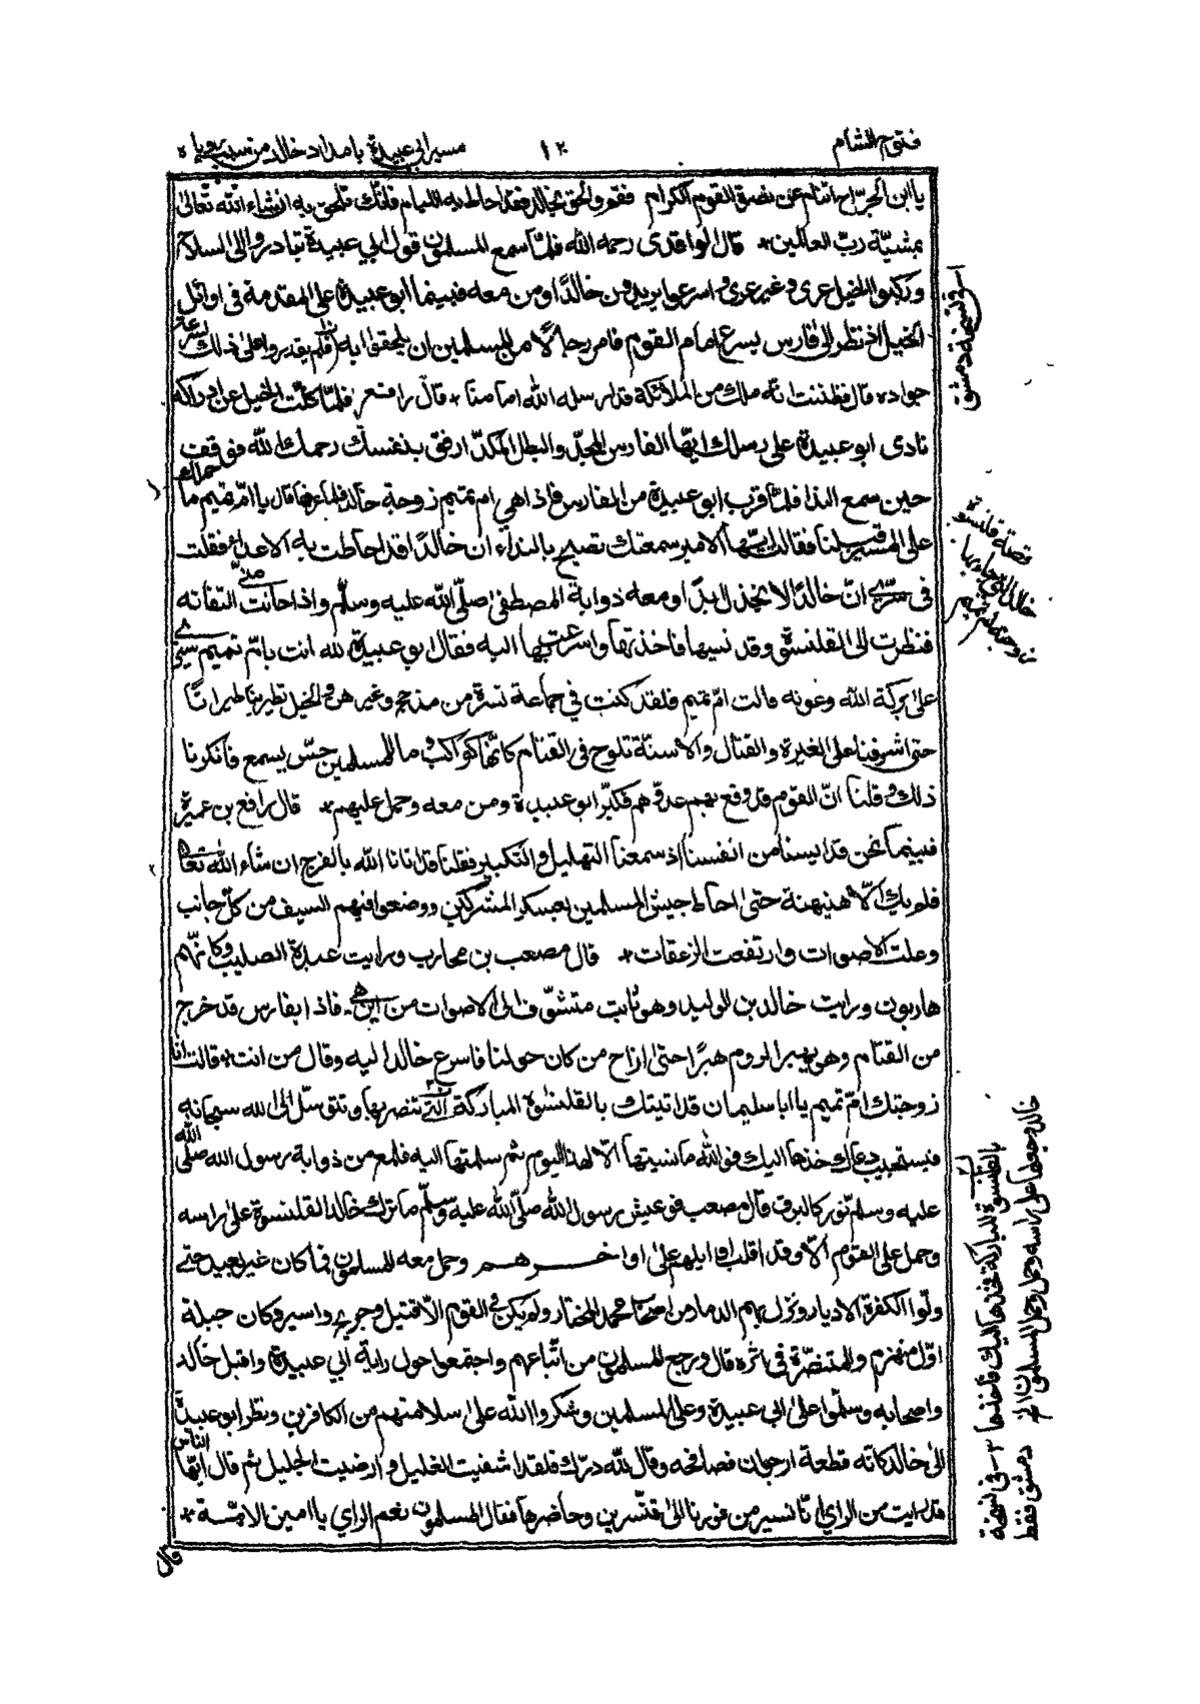 فتوح الشام
١٢
مسير ابي عبيدة بامداد خالد من سبب رويا ه
يا ابن الجرّاح اتنام عن نصرة القوم الكرام فقم والحق بخالد فقد احاط به اللئام فانك تلحق به انشاء الله تعالى
بمشيّة ربّ العالمين * قال الواقدى رحمه الله فلمّا سمع المسلمون قول ابي عبيدة تبادروا الى السلاح
وركبوا الخيل عرى وغير عرى واسرعوا يريدون خالدًا ومن معه فبينما ابو عبيدة على المقدمة فى اوائل
الخيل اذ نظر الى فارس يسرع امام القوم فامر رجالا من المسلمين ان يلحقوا به فلم يقدروا على ذلك لسرعة
جواده قال فظننت انّه ملك من الملائكة قد ارسله الله امامنا * قال رافع فلمّا كلّت الخيل عن ادراكه
نادى ابو عبيدة على رسلك ايّها الفارس المجدّ والبطل المكدّ ارفق بنفسك رحمك الله فوقف
حين سمع الندا فلمّا قرب ابو عبيدة من الفارس فاذا هي ام تميم زوجة خالد فلما عرفها قال يا امّ تميم ما حملك
على المسير قبلنا فقالت ايّها الامير سمعتك تصيح بالنداء ان خالدًا قد احاطت به الاعداء فقلت
فى سرّي انّ خالدًا لا يخذل ابدًا ومعه ذوابة المصطفى صلّى الله عليه وسلّم واذا حانت منّي التفاتة
فنظرت الى القلنسوة وقد نسيها فاخذتها واسرعت بها اليه فقال ابو عبيدة لله انت يا امّ تميم سيري
على بركة الله وعونه قالت امّ تميم فلقد كنت في جماعة نسوة من مذحج وغيرهن والخيل تطير بنا طيرانًا
حتى اشرفنا على الغبرة والقتال والاسنّة تلوح فى القتام كانّها كواكب وما للمسلمين حسّ يسمع فانكرنا
ذلك وقلنا انّ القوم قد وقع بهم عدوّهم فكبّر ابو عبيدة ومن معه وحمل عليهم * قال رافع بن عميرة
فبينما نحن قد ايسنا من انفسنا اذ سمعنا التهليل والتكبير فقلنا قد اتانا الله بالفرج ان شاء الله تعالى
فلم يك الّا هنيهة حتى احاط جيش المسلمين بعسكر المشركين ووضعوا فيهم السيف من كلّ جانب
وعلت الاصوات وارتفعت الزعقات * قال مصعب بن محارب ورايت عبدة الصليب وكانّهم
هاربون ورايت خالد بن الوليد وهو ثابت متشوّف الى الاصوات من اين هي فاذا بفارس قد خرج
من القتام وهو يهبر الروم هبرًا حتى ازاح من كان حولنا فاسرع خالد اليه وقال من انت فقالت انا
زوجتك امّ تميم يا ابا سليمان قد اتيتك بالقلنسوة المباركة التي تنصر بها وتتوسّل الى الله سبحانه
فيستجيب دعاك خذها اليك فوالله ما نسيتها الّا لهذا اليوم ثم سلمتها اليه فلمع من ذوابة رسول الله صلّى الله
عليه وسلم نور كالبرق قال مصعب فوعيش رسول الله صلّى الله عليه وسلّم ما ترك خالد القلنسوة على راسه
وحمل على القوم الّا وقد اقلب اوايلهم على اواخرهم وحمل معه المسلمون فما كان غير بعيد حتى
ولّوا الكفرة الادبار ونزل بهم الدمار من اصحاب محمد المختار ولم يكن فى القوم الّا قتيل وجريح واسير وكان جبلة
اوّل منهزم والمتنصّرة في اثره قال ورجع المسلمون من اتّباعهم واجتمعوا حول راية ابي عبيدة واقبل خالد
واصحابه وسلّموا على ابي عبيدة وعلى المسلمين وشكروا الله على سلامتهم من الكافرين ونظر ابو عبيدة
الى خالد كانه قطعة ارجوان فصافحه وقال لله درّك فلقد اشفيت الغليل وارضيت الجليل ثم قال ايّها الناس
قد رايت من الراي انّا نسير من فورنا الى قنّسرين وحاضرها فقال المسلمون نعم الراي يا امين الامّة *
قال
في نسخة دمشق
قصة قلنسوة
خالد التى جاءت بها
زوجته ام تميم
بالقلنسوة المباركة فخذها اليك فاخذها
خالد وجعلها على راسه وحمل وحمل المسلمون الخ
٣ - فى نسخة
دمشق فقط